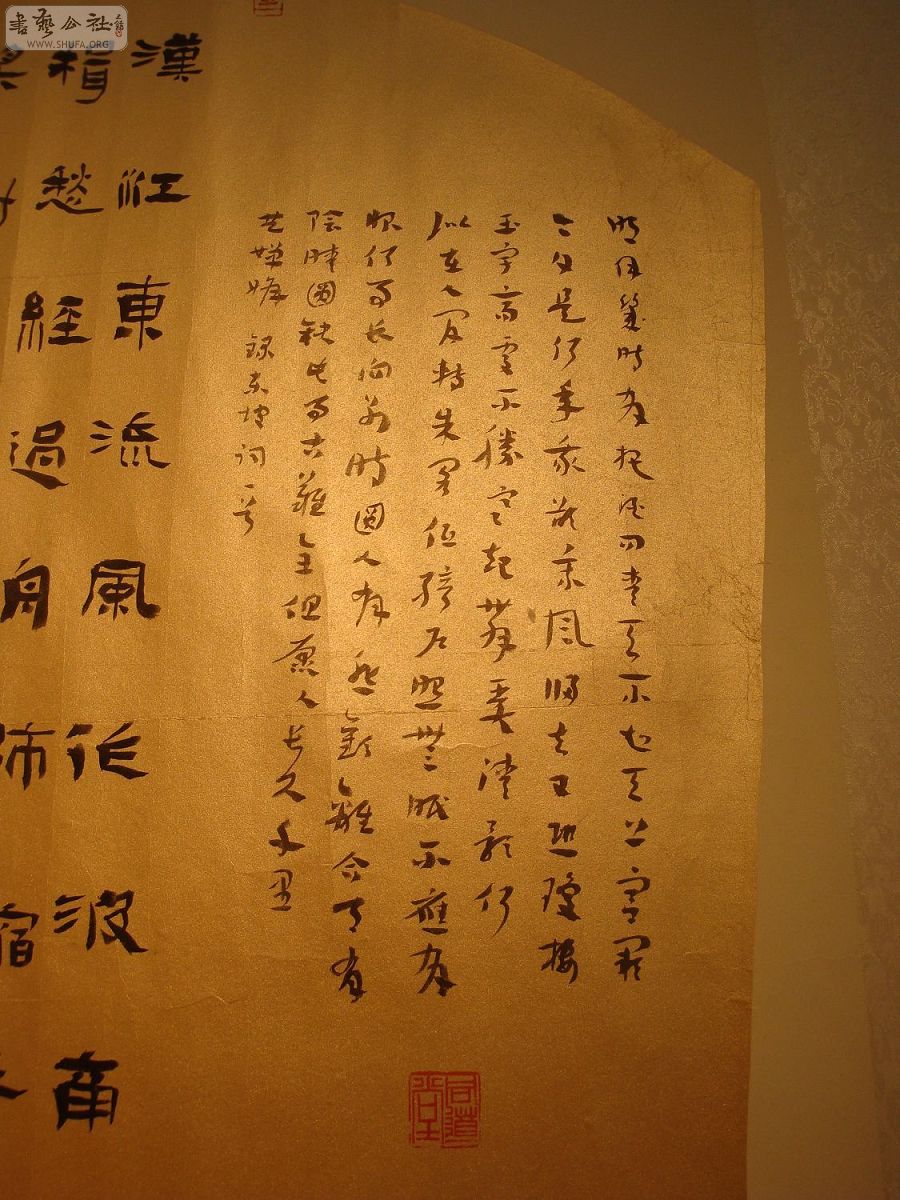 書藝公社
WWW.SHUFA.ORG
明月幾時有把酒問青天不知天上宮闕
今夕是何年我欲乘風歸去又恐瓊樓
玉宇高處不勝寒起舞弄清影何
似在人間轉朱閣低綺户照無眠不應有
恨何事長向別時圓人有悲歡離合月有
陰晴圓缺此事古難全但願人長久千里
共嬋娟 錄東坡詞一首
同道堂
漢江東流風作波商
楫愁經過舟師宿